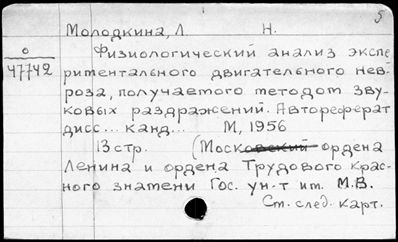 5
Молодкина, Л. Н.
0
47742
Физиологический анализ экспе-
риментального двигательного нев-
роза, получаемого методом зву-
ковых раздражений. Автореферат
дисс... канд... М, 1956
13 стр. (Московский ордена
Ленина и ордена Трудового Крас-
ного знамени Гос. ун-т им. М.В.
См. след. карт.